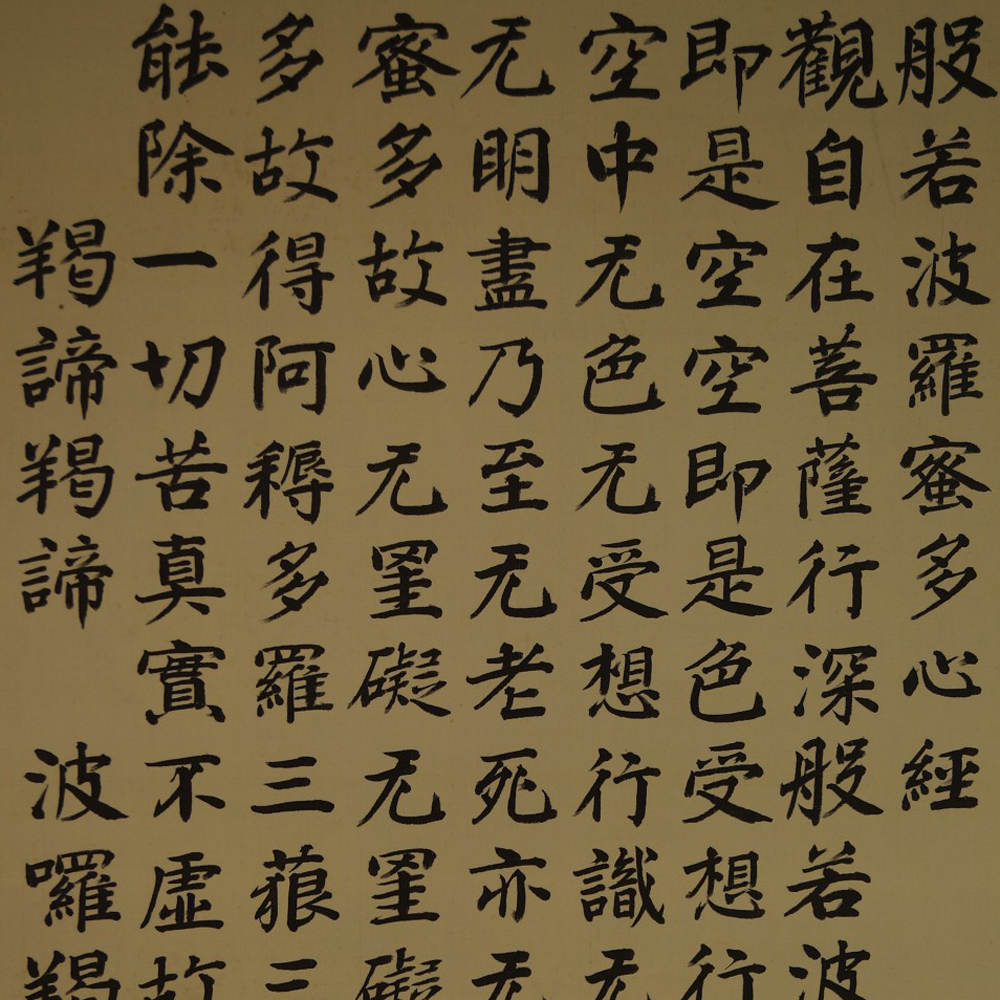 般若波羅蜜多心經
觀自在菩薩行深般若波
即是空空即是色受想行
空中无色无受想行識无
无明盡乃至无老死亦无
蜜多故心无罣礙无罣礙
多故得阿耨多羅三藐三
能除一切苦真實不虛故
羯諦羯諦 波囉羯